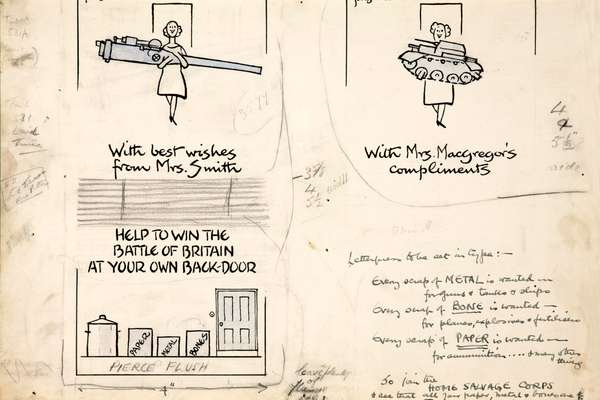 With best wishes
from Mrs. Smith
HELP TO WIN THE
BATTLE OF BRITAIN
AT YOUR OWN BACK-DOOR
PAPER
METAL
BONES
PIERCE FLUSH
4"
With Mrs. Macgregor's
compliments
3¾
4
5½
4
Letterpress to be set in type:-
Every scrap of METAL is wanted—
for guns & tanks & ships
Every scrap of BONE is wanted—
for planes, explosives & fertilisers
Every scrap of PAPER is wanted—
for ammunition .... & many other
things
So join the
HOME SALVAGE CORPS
& see that all your paper, metal & bones are